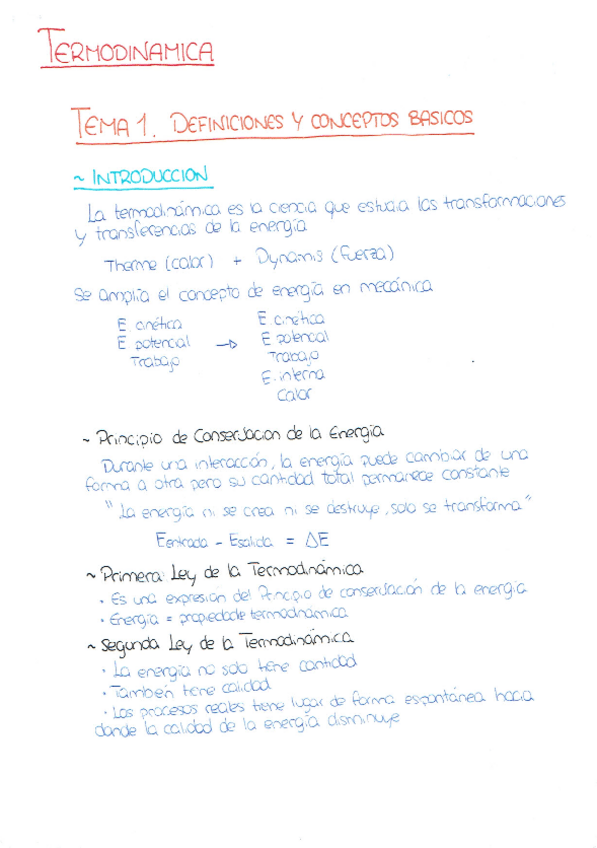 TERMODINAMICA
TEMA 1. DEFINICIONES Y CONCEPTOS BASICOS
~ INTRODUCCION
La termodinámica es la ciencia que estudia las transformaciones
y transferencias de la energía
Therme (calor) + Dynamis (fuerza)
Se amplia el concepto de energía en mecánica
E cinética
E potencial → E potencial
Trabajo
E. cinética
Trabajo
E. interna
Calor
~ Principio de Conservacion de la Energía
Durante una interacción, la energía puede cambiar de una
forma a otra pero su cantidad total permanece constante
"La energía ni se crea ni se destruye, solo se transforma"
Eentrada - Esalida = ΔE
~ Primera Ley de la Termodinámica
· Es una expresion del Principio de conservación de la energia
· Energía = propiedade termodinámica
~ Segunda Ley de la Termodinámica
· La energía no solo tiene cantidad
· Tambien tiene calidad
· Los procesos reales tiene lugar de forma espontánea hacia
donde la calidad de la energía disminuye